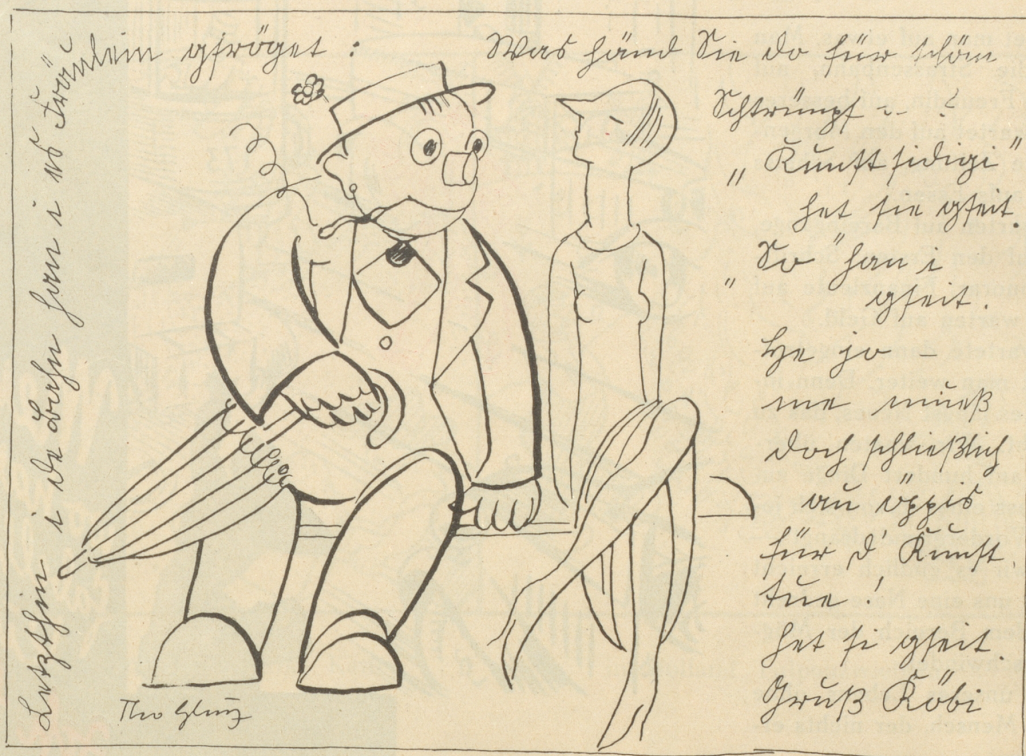 Letzthin i da Bahn han i es Fräulein gfröget :
Was händ Sie do für schöni
Schtrümpf -- ?
„Kunstsidigi"
het sie gseit.
„So" han i
gseit.
He jo –
me mueß
doch schließlich
au öppis
für d' Kunst
tue !
het si gseit.
Gruß Köbi
Theo Glinz